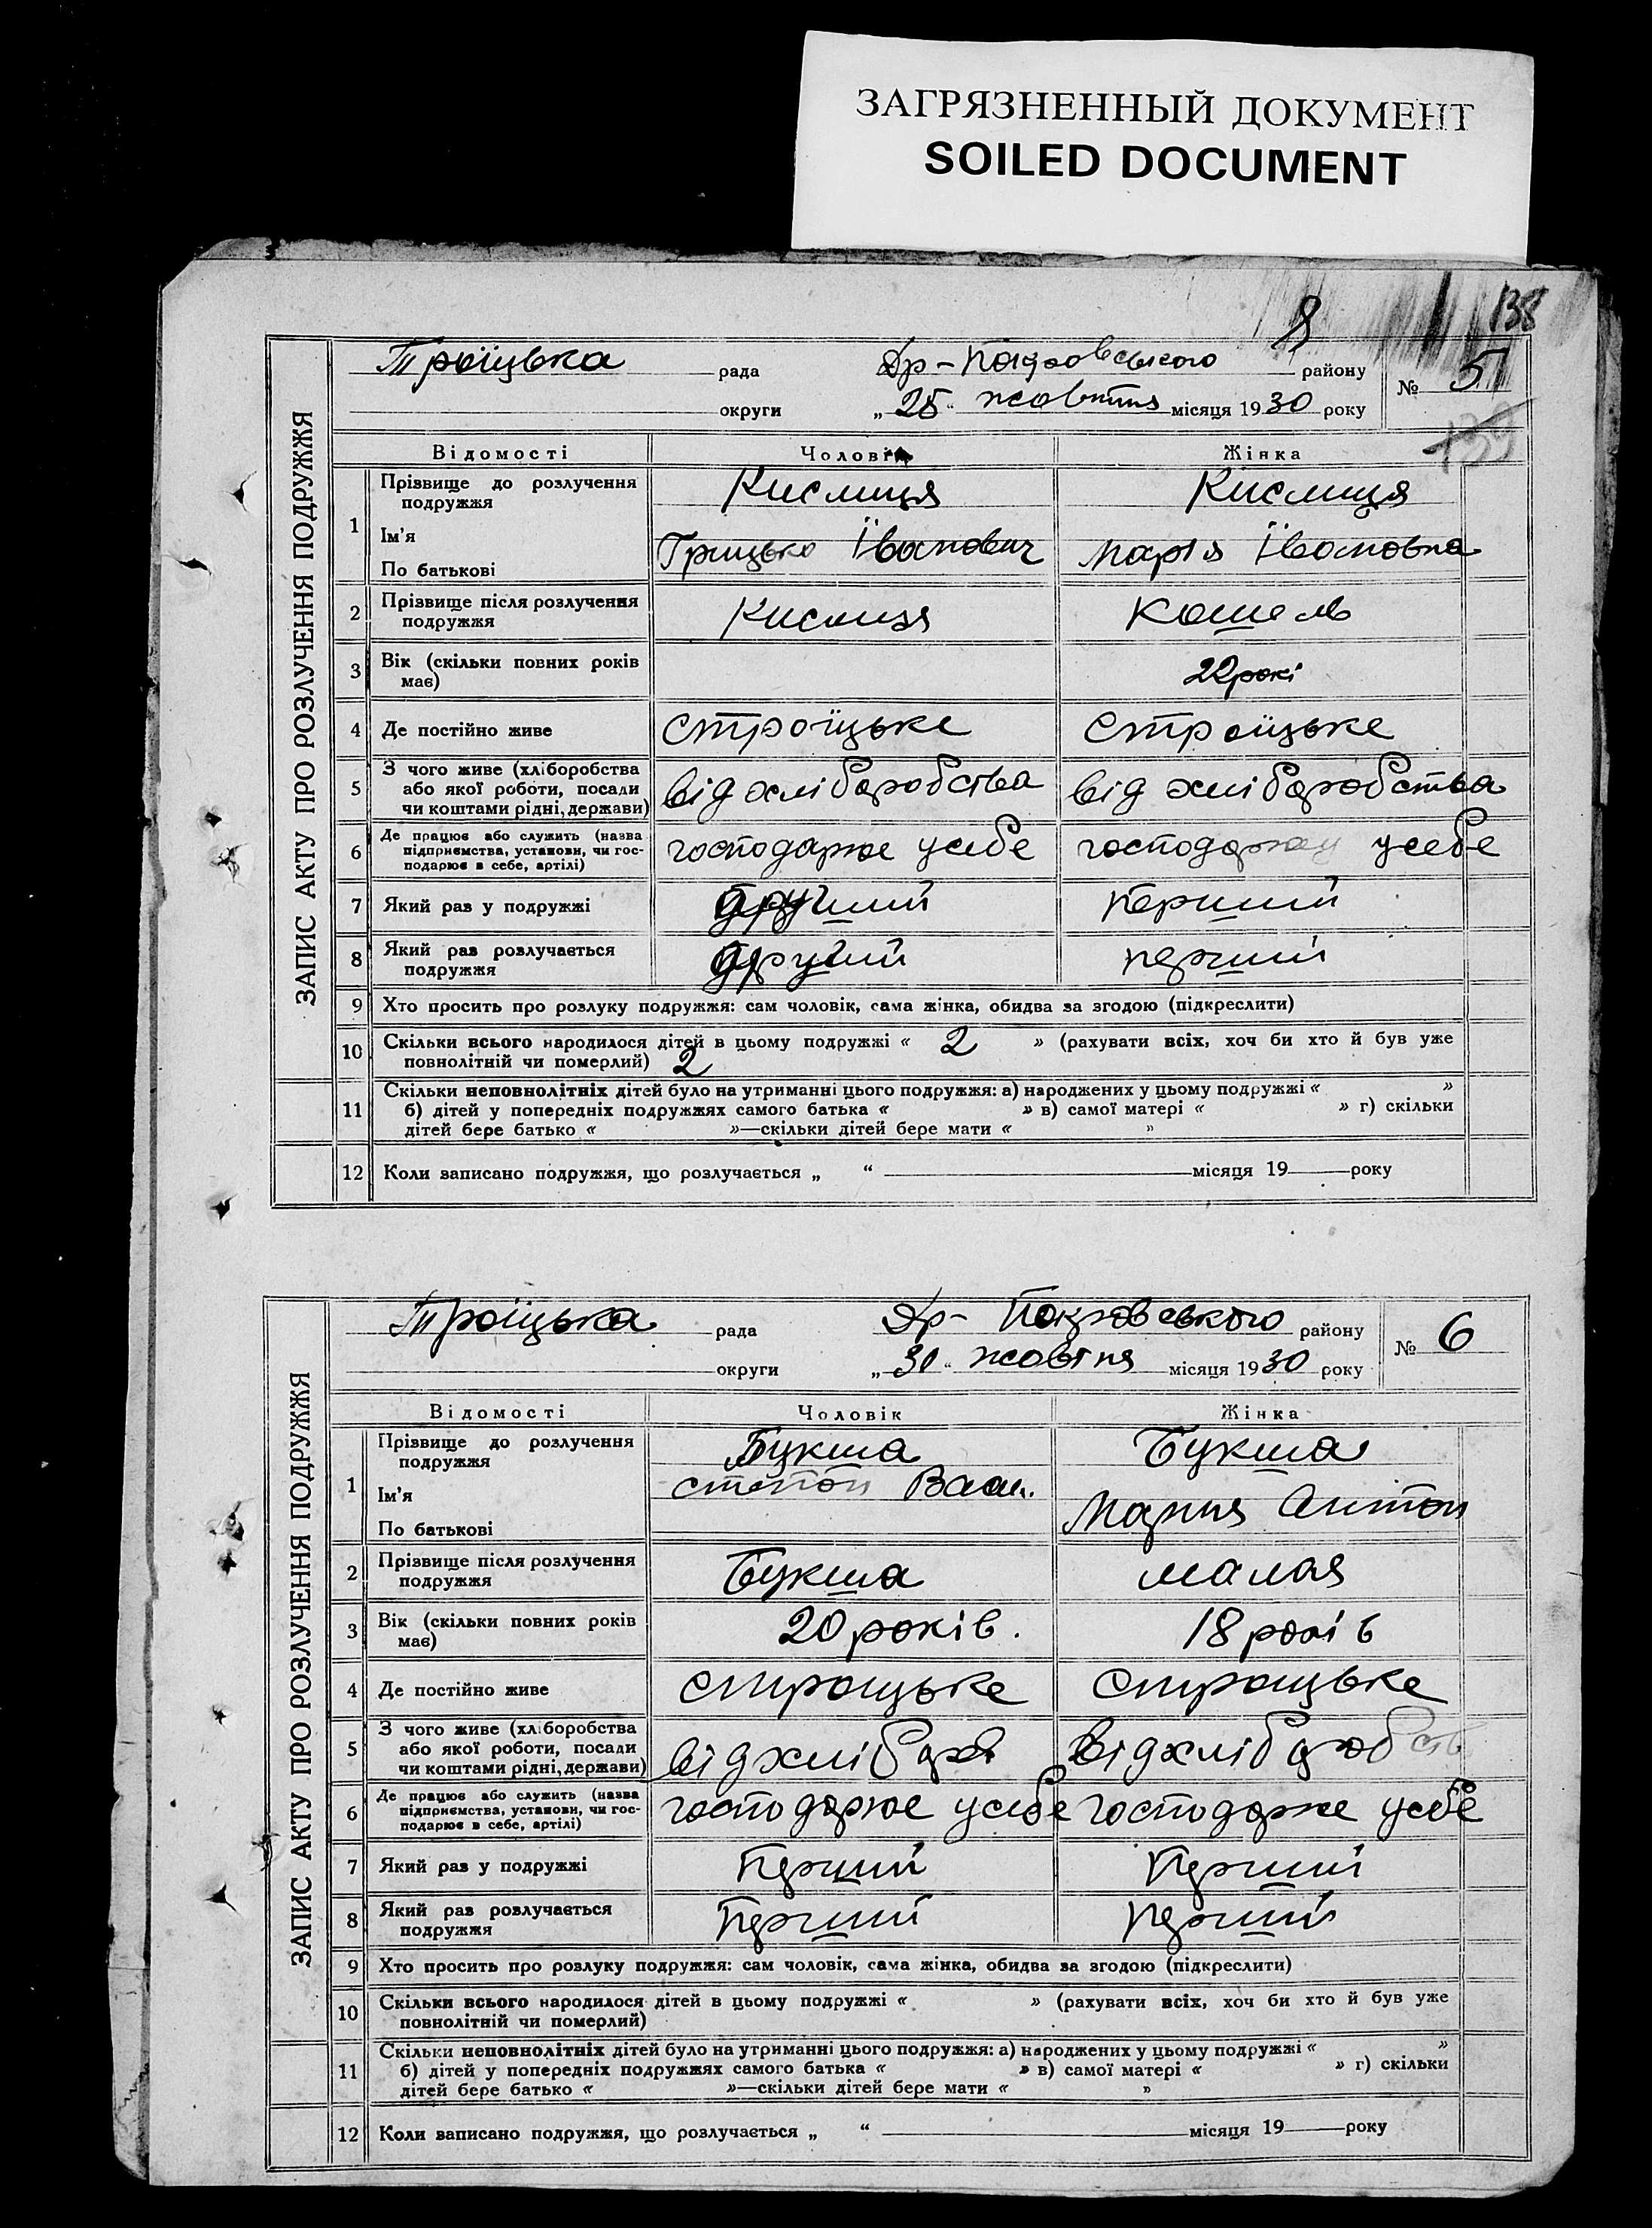 ЗАГРЯЗНЕННЫЙ ДОКУМЕНТ
SOILED DOCUMENT
138
ЗАПИС АКТУ ПРО РОЗЛУЧЕННЯ ПОДРУЖЖЯ
Троїцька рада Др-Покровського району № 5
округи „ 25 “ жовтня місяця 1930 року
139
Відомості Чоловік Жінка
1 Прізвище до розлучення подружжя Кислиця Кислиця
Ім'я
По батькові Грицько Іванович Марія Івановна
2 Прізвище після розлучення подружжя Кислиця Кошель
3 Вік (скільки повних років має) 22 рокі
4 Де постійно живе строїцьке строїцьке
5 З чого живе (хліборобства або якої роботи, посади чи коштами рідні, держави) від хліборобства від хліборобства
6 Де працює або служить (назва підприємства, установи, чи господарює в себе, артілі) господарює усебе усебе
7 Який раз у подружжі другий перший
8 Який раз розлучається подружжя другий перший
9 Хто просить про розлуку подружжя: сам чоловік, сама жінка, обидва за згодою (підкреслити)
10 Скільки всього народилося дітей в цьому подружжі « 2 » (рахувати всіх, хоч би хто й був уже
повнолітній чи померлий) 2
11 Скільки неповнолітніх дітей було на утриманні цього подружжя: а) народжених у цьому подружжі « »
б) дітей у попередніх подружжях самого батька « » в) самої матері « » г) скільки
дітей бере батько « »—скільки дітей бере мати « »
12 Коли записано подружжя, що розлучається „ “ місяця 19 року
ЗАПИС АКТУ ПРО РОЗЛУЧЕННЯ ПОДРУЖЖЯ
Троїцька рада Др- Покровського району № 6
округи „ 30 “ жовтня місяця 1930 року
Відомості Чоловік Жінка
1 Прізвище до розлучення подружжя Букша Букша
Ім'я степон Васи.
По батькові Мария Антон
2 Прізвище після розлучення подружжя Букша малая
3 Вік (скільки повних років має) 20 років. 18 років
4 Де постійно живе строцьке строцьке
5 З чого живе (хліборобства або якої роботи, посади чи коштами рідні, держави) від хлібороб від хліборобств
6 Де працює або служить (назва підприємства, установи, чи господарює в себе, артілі) господарює усебе господарює усебе
7 Який раз у подружжі Перший Перший
8 Який раз розлучається подружжя Перший Перший
9 Хто просить про розлуку подружжя: сам чоловік, сама жінка, обидва за згодою (підкреслити)
10 Скільки всього народилося дітей в цьому подружжі « » (рахувати всіх, хоч би хто й був уже
повнолітній чи померлий)
11 Скільки неповнолітніх дітей було на утриманні цього подружжя: а) народжених у цьому подружжі « »
б) дітей у попередніх подружжях самого батька « » в) самої матері « » г) скільки
дітей бере батько « »—скільки дітей бере мати « »
12 Коли записано подружжя, що розлучається „ “ місяця 19 року